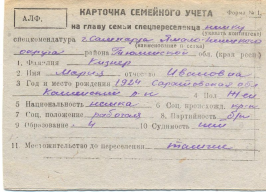 АЛФ.
КАРТОЧКА СЕМЕЙНОГО УЧЕТА
Форма № 1
на главу семьи спецпереселенца немку
спецкомендатура г. Салехарда Ямало-Ненецкого
округа района Тюменской обл. (края респ.)
1. Фамилия Кизнер
2. Имя Мария отчество Ивановна
3. Год и место рождения 1924 Саратовская обл
Каменский р-н 4. Пол жен
5. Национальность немка 6. Соц. происхожд. крес
7. Соц. положение работая 8. Партийность б/п
9. Образование 4 10. Судимость
11. Местожительство до переселения